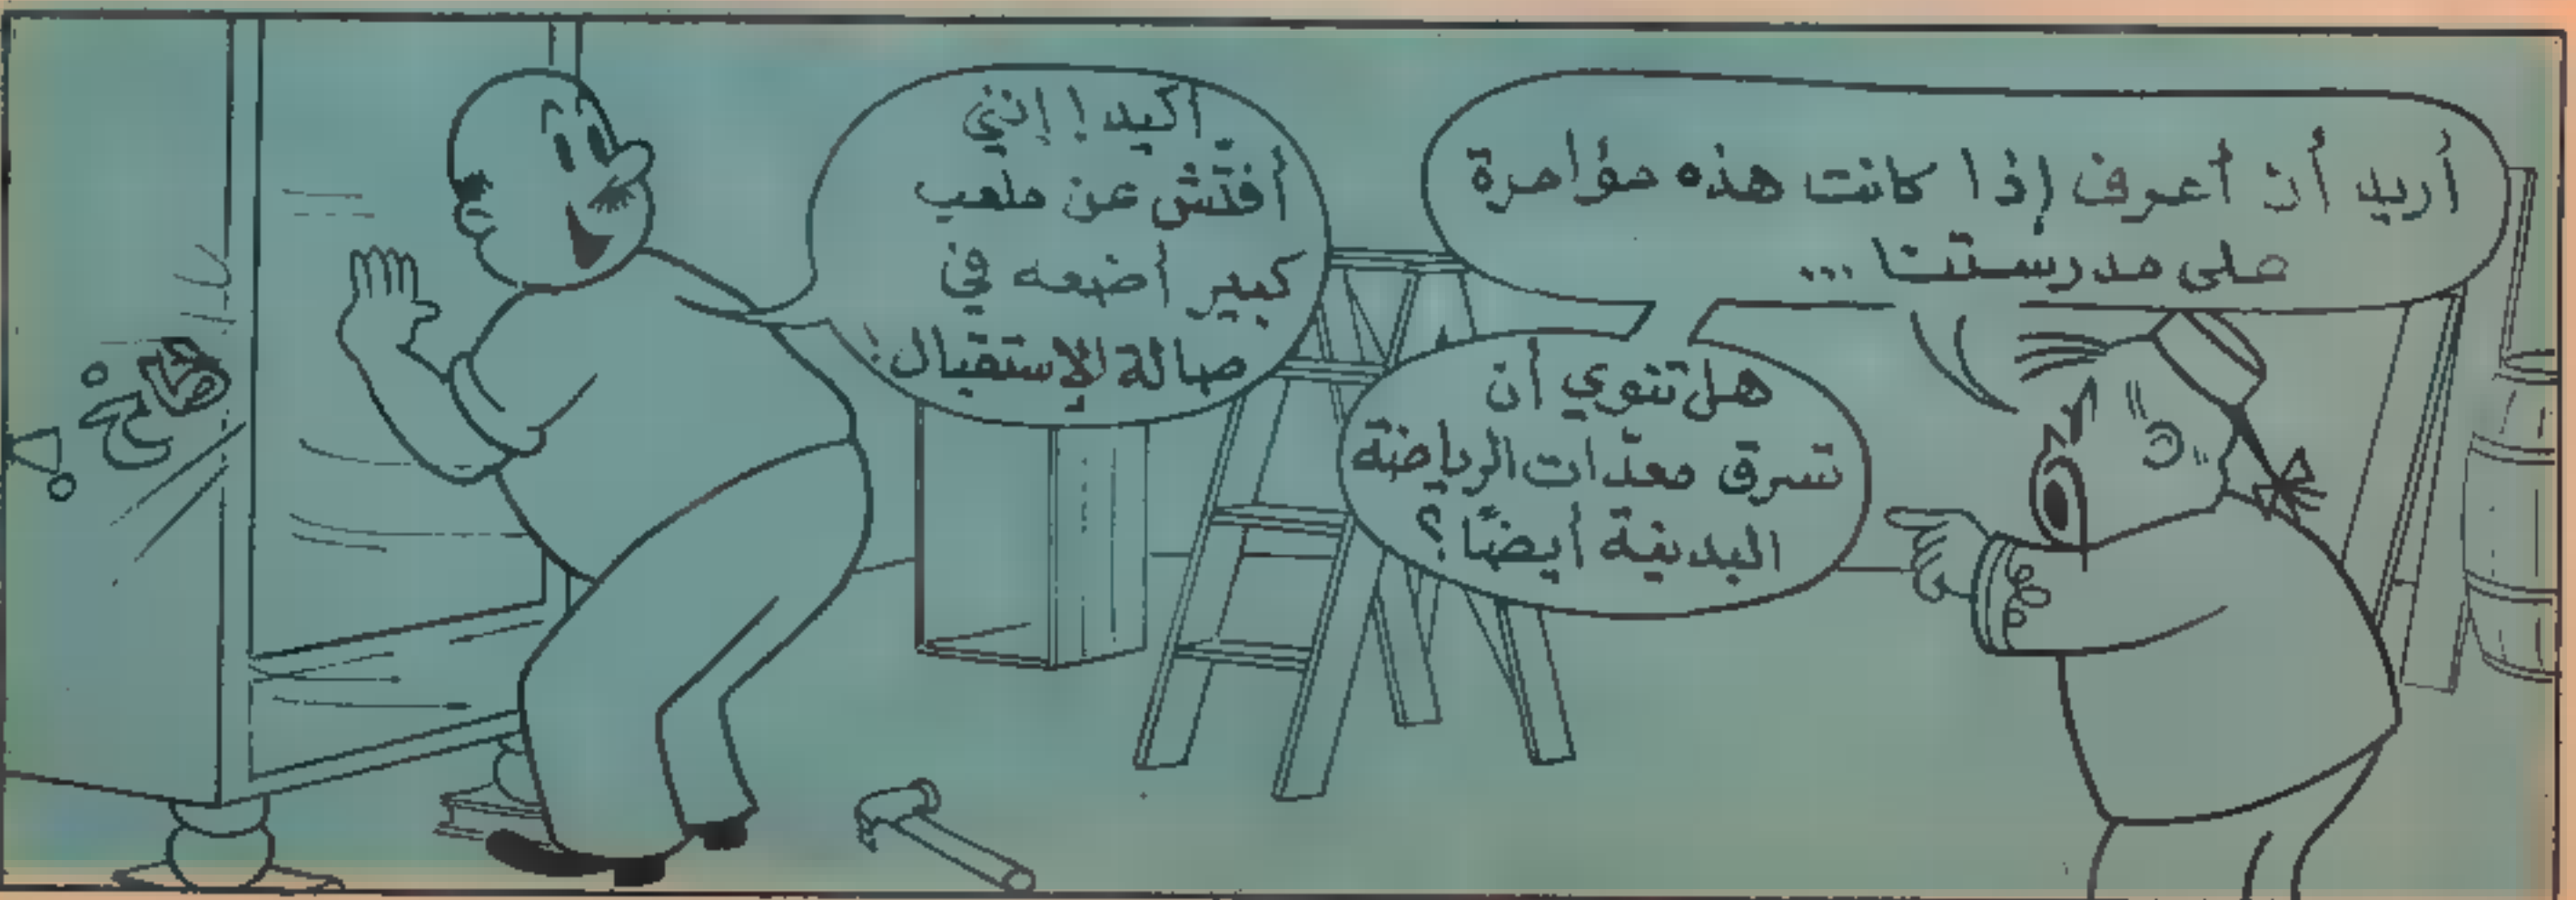 أريد أن أعرف إذا كانت هذه مؤامرة
على مدرستنا ...
هل تنوي أن
تسرق معدّات الرياضة
البدنيّة أيضًا؟
أكيد! إنني
أفتّش عن ملعب
كبير أضعه في
صالة الإستقبال!